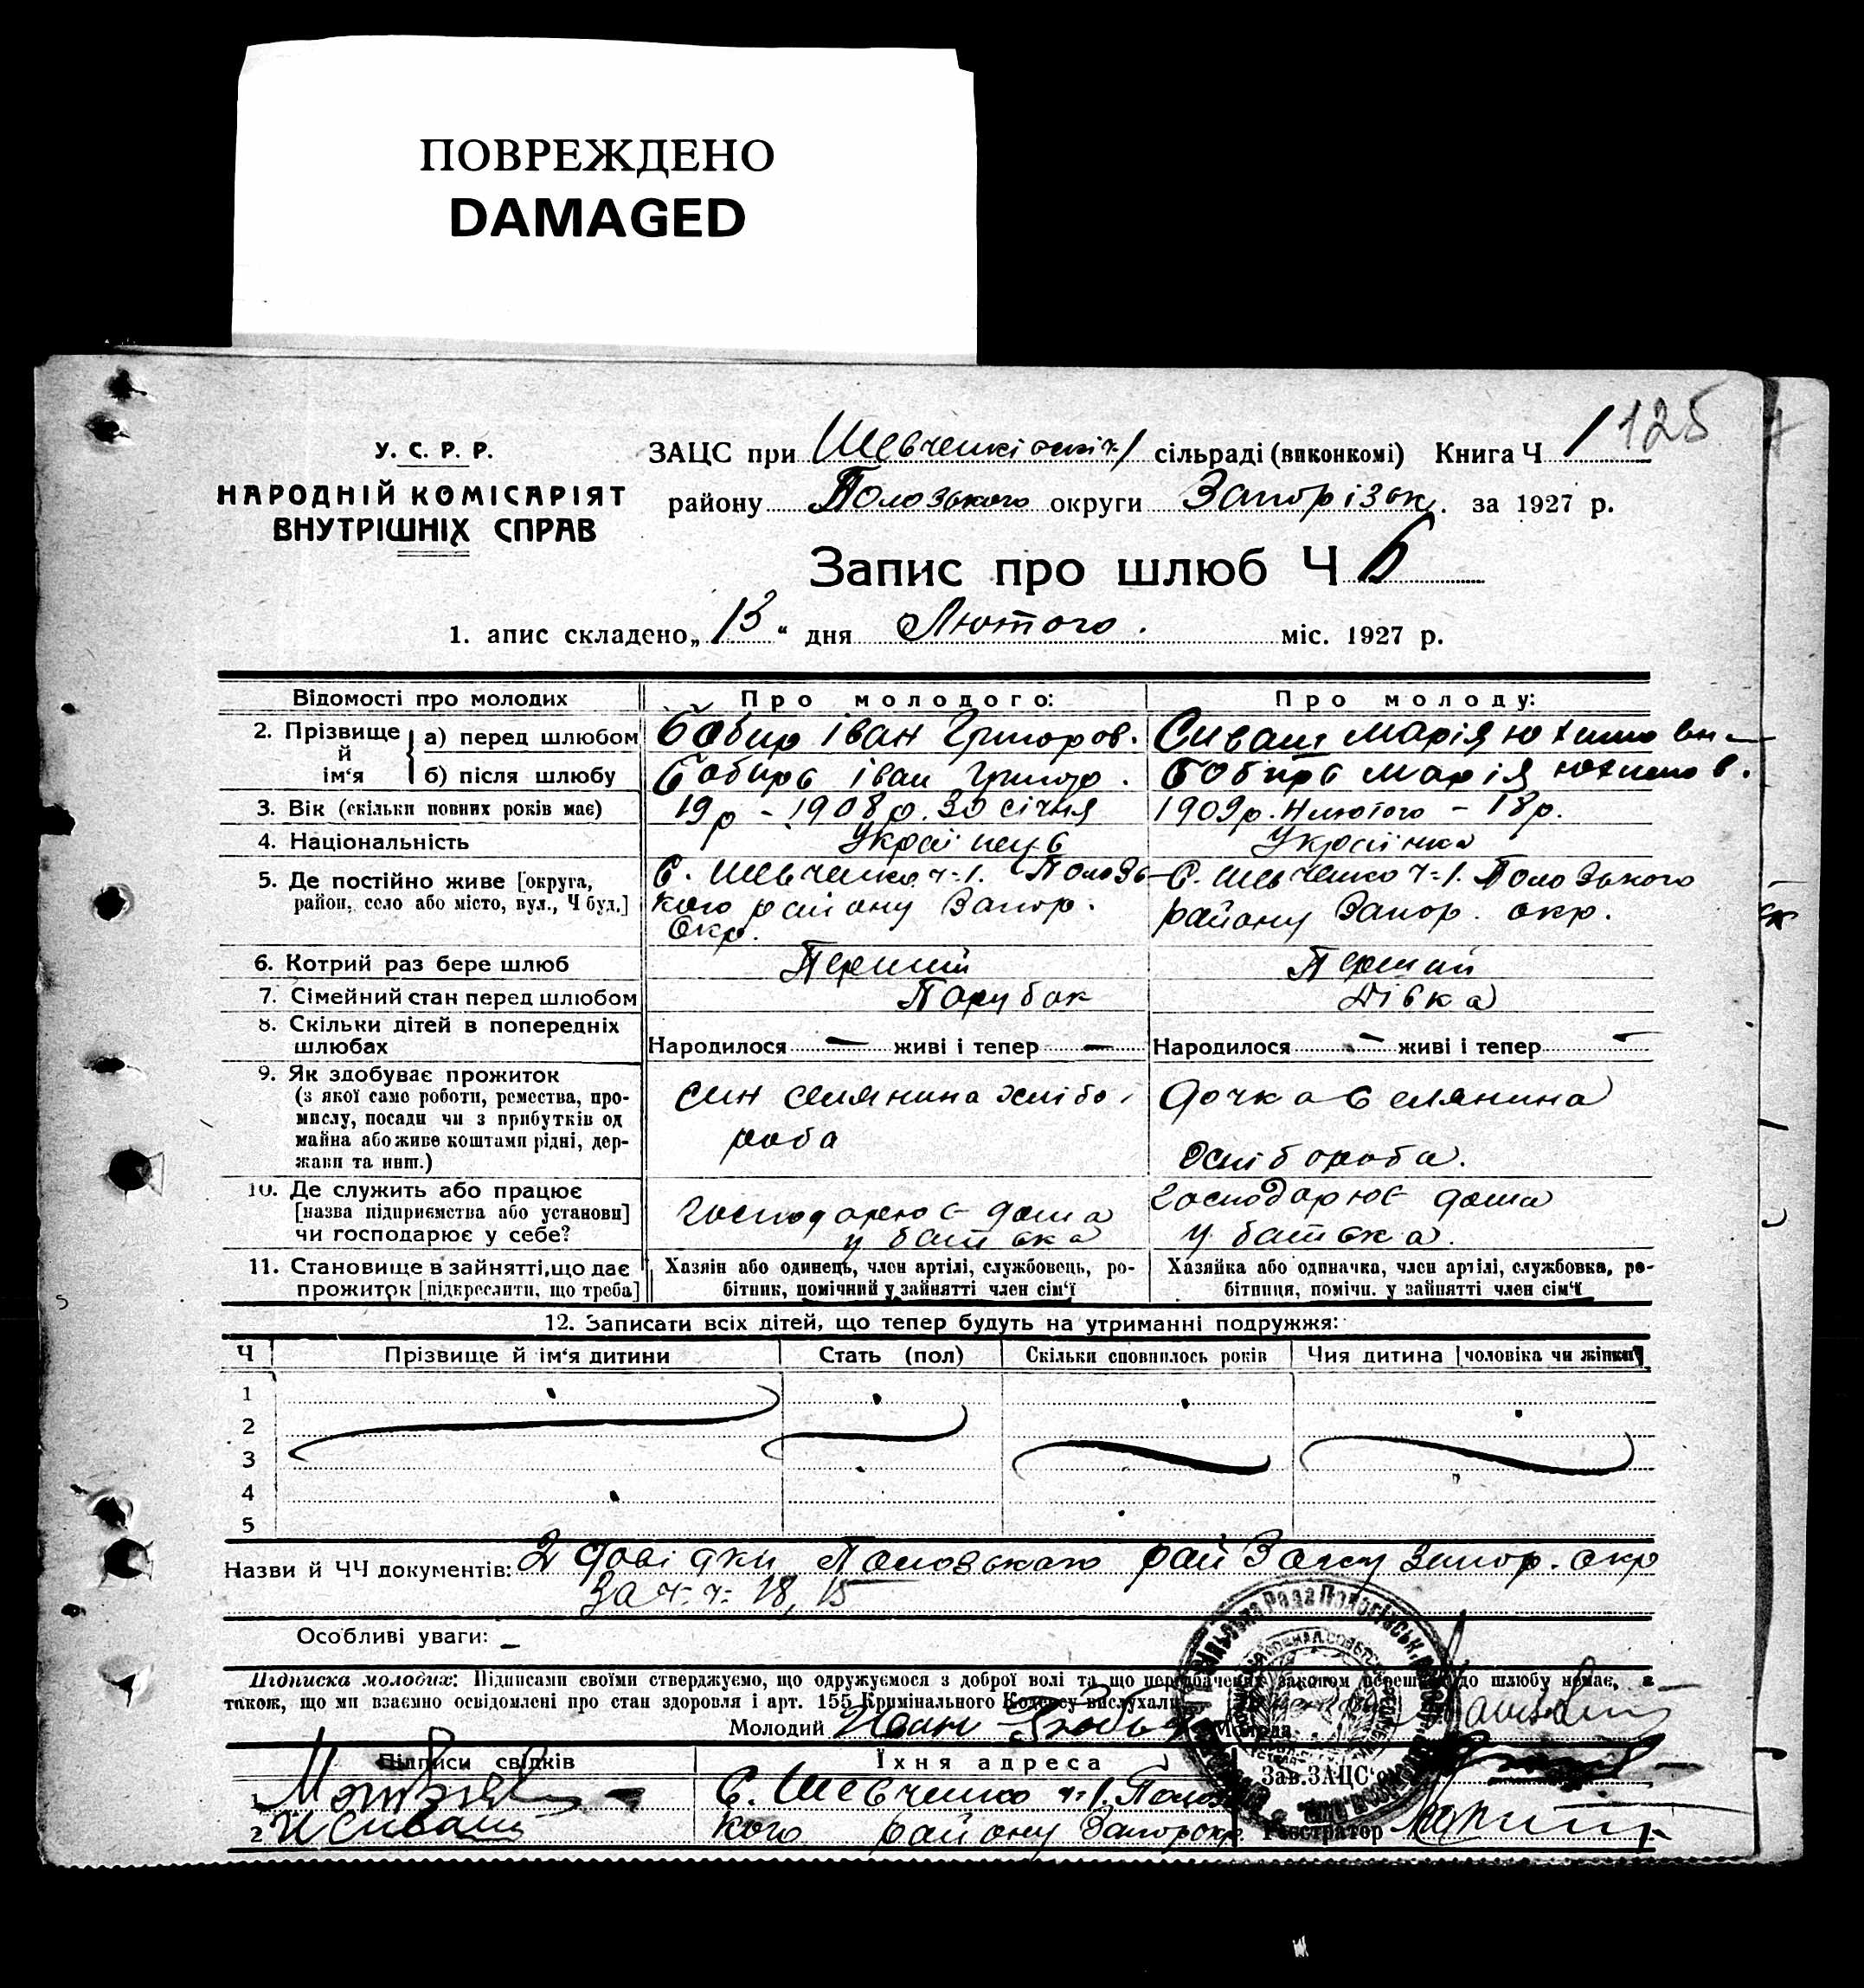 ПОВРЕЖДЕНО
DAMAGED
125
У. С. Р. Р.
НАРОДНІЙ КОМІСАРІЯТ
ВНУТРІШНІХ СПРАВ
ЗАЦС при сільраді (виконкомі) Книга Ч 1
району Полозького округи Запорізьк. за 1927 р.
Запис про шлюб Ч 6
1. апис складено „ 13 “ дня Лютого. міс. 1927 р.
Відомості про молодих Про молодого: Про молоду:
2. Прізвище й ім‘я
а) перед шлюбом Бобир іван Григоров. Сиваш Марія Юхимовн
б) після шлюбу Бобирь іван Григор. Бобирь Марія Юхимов.
3. Вік (скільки повних років має) 19р - 1908р. 30 січня 1909р. лютого - 18р.
4. Національність Українець Українка
5. Де постійно живе [округа, район, село або місто, вул., Ч буд.]
С. Шевченко ч-1. Полозь-
кого району Запор.
Окр.
С. Шевченко ч-1. Полозького
району Запор. окр.
6. Котрий раз бере шлюб Перший Перший
7. Сімейний стан перед шлюбом Парубок Дівка
8. Скільки дітей в попередніх
шлюбах Народилося — живі і тепер — Народилося — живі і тепер —
9. Як здобуває прожиток
(з якої саме роботи, ремества, про-
мислу, посади чи з прибутків од
майна або живе коштами рідні, дер-
жави та инш.)
син селянина хлібо
роба
дочка селянина
хлібороба.
10. Де служить або працює
[назва підприємства або установи]
чи господарює у себе?
господарює дома
у батька
господарює дома
у батька.
11. Становище в зайнятті, що дає
прожиток [підкреслити, що треба]
Хазяїн або одинець, член артілі, службовець, ро-
бітник, помічний у зайнятті член сім‘ї
Хазяйка або одиначка, член артілі, службовка, ро-
бітниця, помічн. у зайнятті член сім‘ї
12. Записати всіх дітей, що тепер будуть на утриманні подружжя:
Ч Прізвище й ім‘я дитини Стать (пол) Скільки сповнилось років Чия дитина [чоловіка чи жінки]
1
2
3
4
5
Назви й ЧЧ документів: 2 довідки Полозького рай Загсу Запор. окр
За ч.ч. 18, 15
Особливі уваги: –
Підписка молодих: Підписами своїми стверджуємо, що одружуємося з доброї волі та що передбачених законом перешкод до шлюбу немає, а
також, що ми взаємно освідомлені про стан здоровля і арт. 155 Кримінального Кодексу вислухали
Молодий Иван Молода
Підписи свідків Їхня адреса Зав. ЗАЦС‘ом
1 С. Шевченко ч-1. Полозь
2 И Сиваш кого району Запор окр. Реєстратор